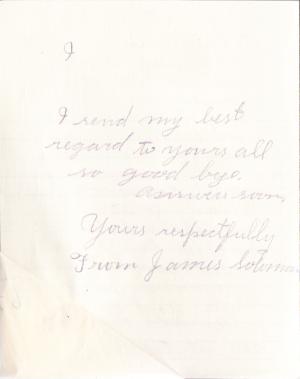 I
I send my best
regard to yours all
so good bye.
answer soon,
Yours respectfully
From James Solomon